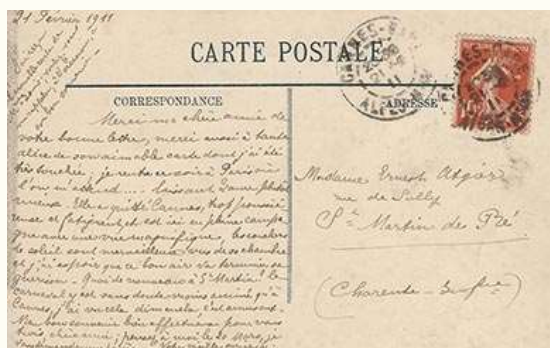 21 Février 1911
CARTE POSTALE
CORRESPONDANCE
ADRESSE
Merci ma chère amie de
votre bonne lettre, merci aussi à tante
Alice de son aimable carte dont j'ai été
très touchée, je rentre ce soir à Paris où
l'on m'attend ... laissant
mieux. Elle a quitté Cannes, trop poussié
reuse et fatigant, et est ici en pleine campa
gne avec une vue magnifique, les couchers
de soleil sont merveilleux vus de sa chambre
et j'ai espoir que ce bon air va terminer sa
guérison. Quoi de nouveau à St Martin? le
carnaval y est sans doute moins animé qu'à
Cannes, j'ai vu cela dimanche, c'est amusant.
bien affectueux pour vous
trois, chère amie; pensez à moi le 20 Mars, je
Madame Ernest Atgier
rue de Sully
St Martin de Ré
(Charente-Infre)
CANNES
ALPES-MMES